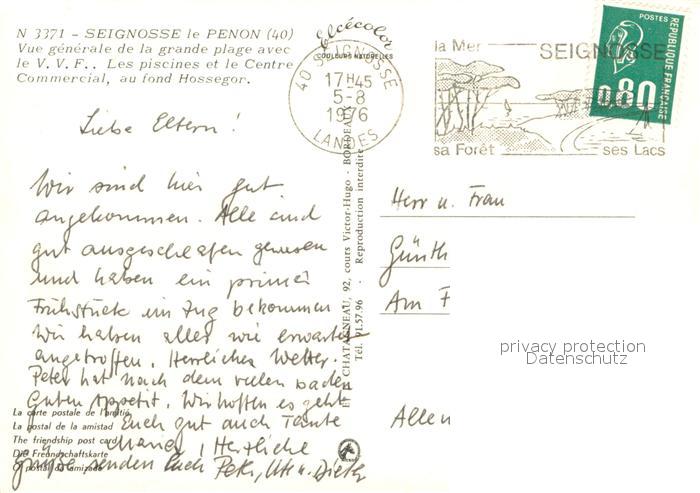 N 3371 - SEIGNOSSE le PENON (40)
Vue générale de la grande plage avec
le V. V. F.. Les piscines et le Centre
Commercial, au fond Hossegor.
Elcécolor
COULEURS NATURELLES
40 SEIGNOSSE
17H45
5-8
1976
LANDES
la Mer SEIGNOSSE
sa Forêt ses Lacs
POSTES
REPUBLIQUE FRANÇAISE
0,80
Liebe Eltern!
Wir sind hier gut
angekommen. Alle sind
gut ausgeschlafen gewesen
und haben ein prima
Frühstück im Zug bekommen
Wir haben alles wie erwartet
angetroffen. Herrliches Wetter.
Peter hat nach dem vielen baden
Guten Appetit. Wir hoffen es geht
Euch gut auch Tante
Maria! Herzliche
Grüße senden Euch Peter, Ute u. Dieter
La carte postale de l'amitié
La postal de la amistad
The friendship post card
Die Freundschaftskarte
O postal da amizade
CHATAGNEAU, 92, cours Victor-Hugo - BORDEAUX
Tél. 91.57.96 - Reproduction interdite
Herr u. Frau
Günth
Am F
Allen
privacy protection
Datenschutz